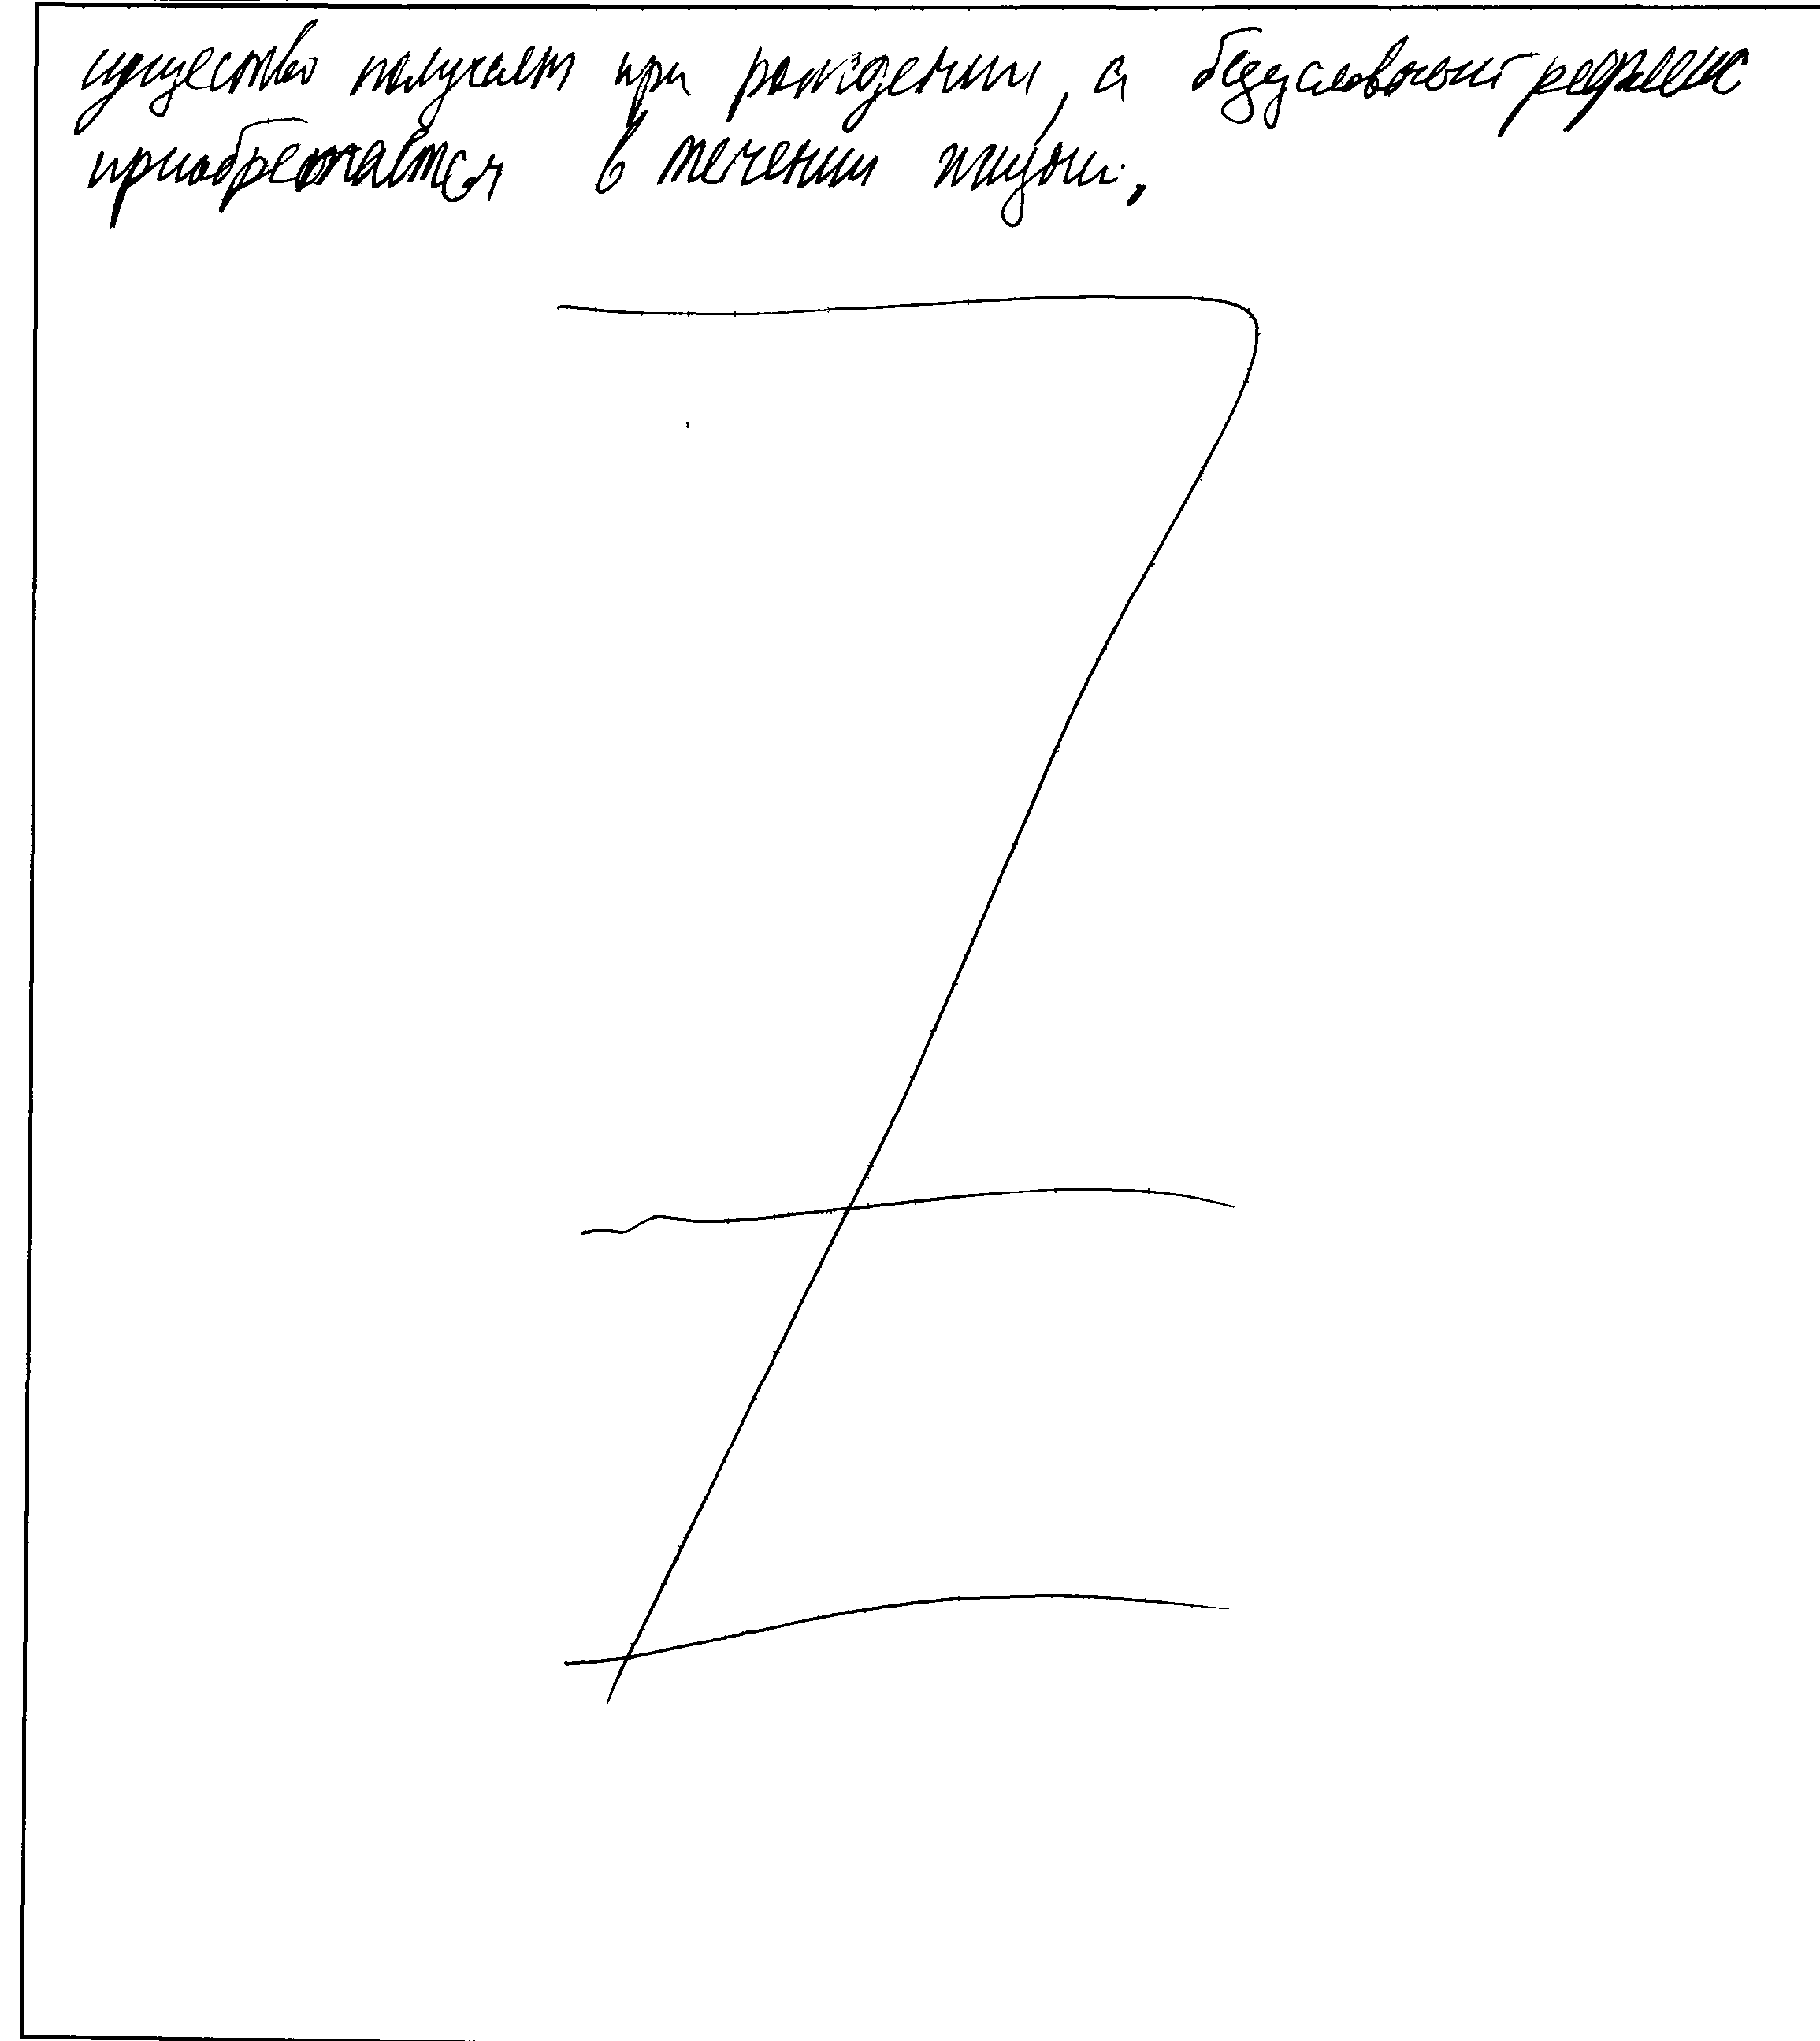 существо получает при рождении, а безусловный рефлекс
приобретается в течении жизни.